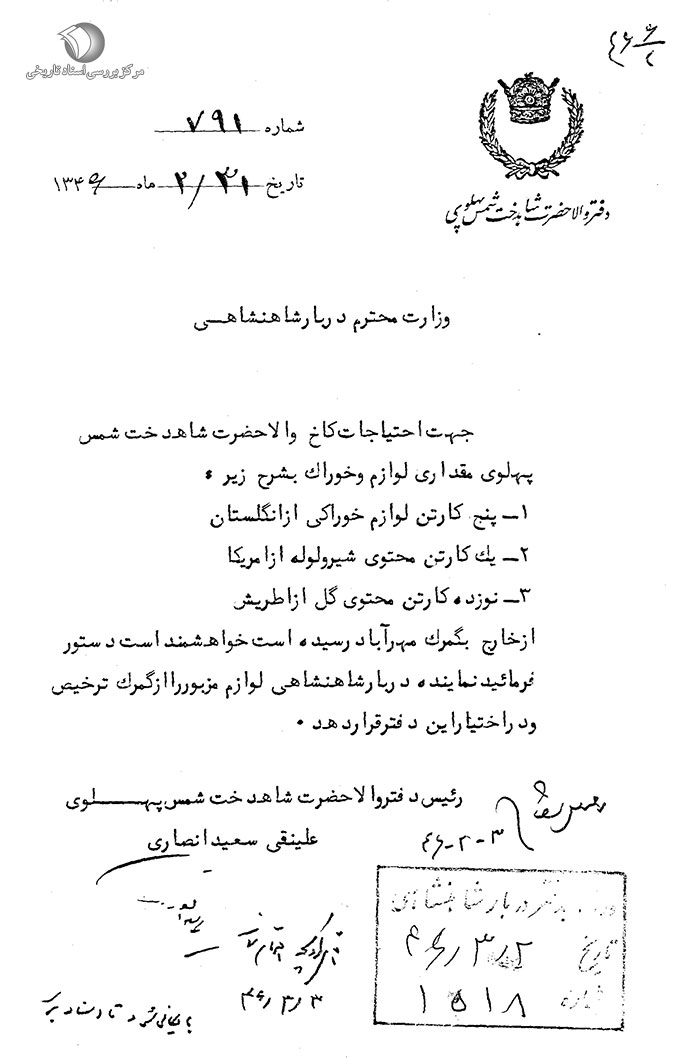 مرکز بررسی اسناد تاریخی
شماره ۷۹۱
تاریخ ۲/۳۱ ماه ۱۳۴۶
دفتر والاحضرت شاهدخت شمس پهلوی
وزارت محترم دربار شاهنشاهی
جهت احتیاجات کاخ والاحضرت شاهدخت شمس
پهلوی مقداری لوازم و خوراك بشرح زیر :
۱ــ پنج کارتن لوازم خوراکی از انگلستان
۲ــ یك کارتن محتوی شیرولوله از امریکا
۳ــ نوزده کارتن محتوی گل از اطریش
از خارج بگمرك مهرآباد رسیده است خواهشمند است دستور
فرمائید نماینده دربار شاهنشاهی لوازم مزبور را از گمرك ترخیص
و در اختیار این دفتر قرار دهد .
رئیس دفتر والاحضرت شاهدخت شمس پهلوی
علینقی سعید انصاری
۴۶-۲-۳
دربار شاهنشاهی
تاریخ ۴۶/۳/۲
شماره ۱۵۱۸
۴۶/۳/۳
بایگانی شود